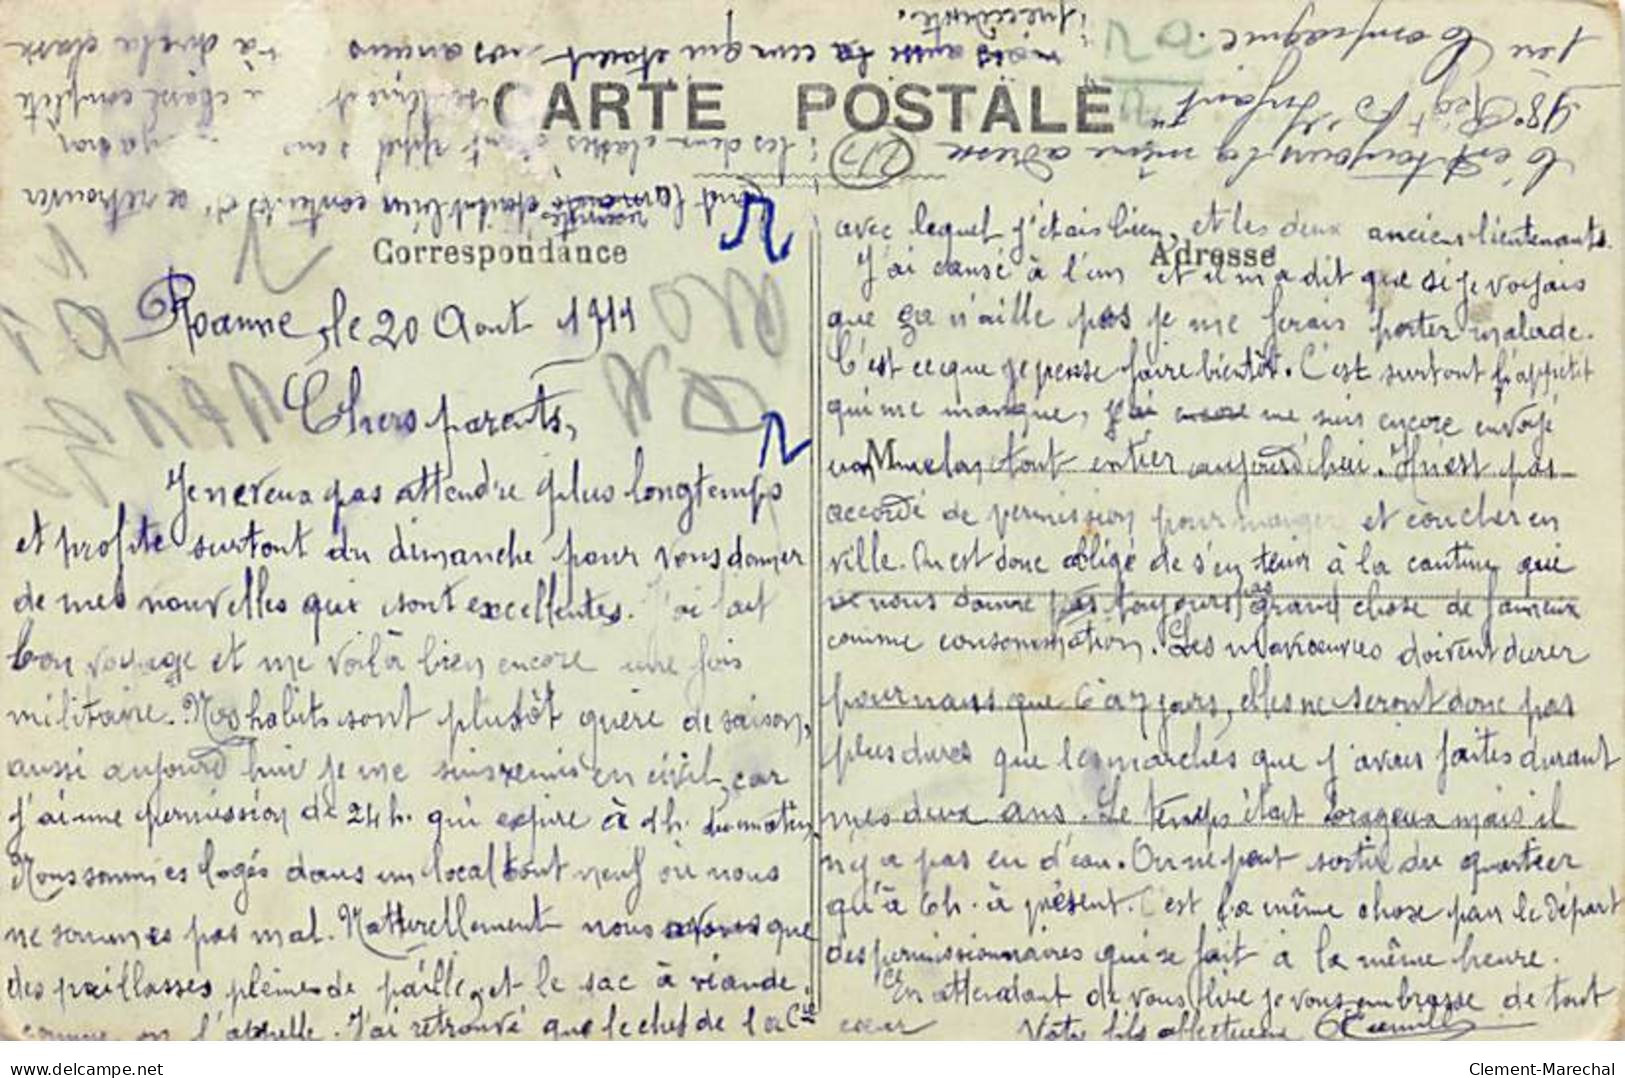 CARTE POSTALE
Correspondance
Adresse
Roanne, le 20 Aout 1911
Chers parents,
Je ne veux pas attendre plus longtemps
et profite surtout du dimanche pour vous donner
de mes nouvelles qui sont excellentes. J'ai fait
bon voyage et me voilà bien encore une fois
militaire. Nos habits sont plutôt guère de saison,
aussi aujourd'hui je me suis remis en civil, car
j'ai une permission de 24 h. qui expire à 1 h. du matin.
Nous sommes logés dans un local tout neuf où nous
ne sommes pas mal. Natturellement nous avons que
des paillasses pleines de paille, et le sac à viande.
comme on l'appelle. J'ai retrouvé que le chef de la Cie
avec lequel j'étais bien, et les deux anciens lieutenants.
J'ai causé à l'un et il m'a dit que si je voyais
que ça n'aille pas je me ferais porter malade.
C'est ce que je pense faire bientôt. C'est surtout l'appétit
qui me manque, j'ai encore me suis encore envoyé
un melon tout entier aujourd'hui. Il n'est pas
accordé de permission pour manger et coucher en
ville. On est donc obligé de s'en tenir à la cantine qui
ne nous donne pas toujours grand chose de fameux
comme consommation. Les manœuvres doivent durer
pour nous que 6 à 7 jours, elles ne seront donc pas
plus dures que les marches que j'avais faites durant
mes deux ans. Le temps était orageux mais il
n'y a pas eu d'eau. On ne peut sortir du quartier
qu'à 6 h. à présent. C'est la même chose pour le départ
des permissionnaires qui se fait à la même heure.
En attendant de vous lire je vous embrasse de tout
cœur Votre fils affectueux
C'est toujours la même adresse
98e Régt d'Infant
1ère Compagnie.
contents d'se retrouver
les deux classes
la classe complète
mais aussi ceux qui étaient nos anciens à dire la classe
précédente.
M
Clement-Marechal
delcampe.net